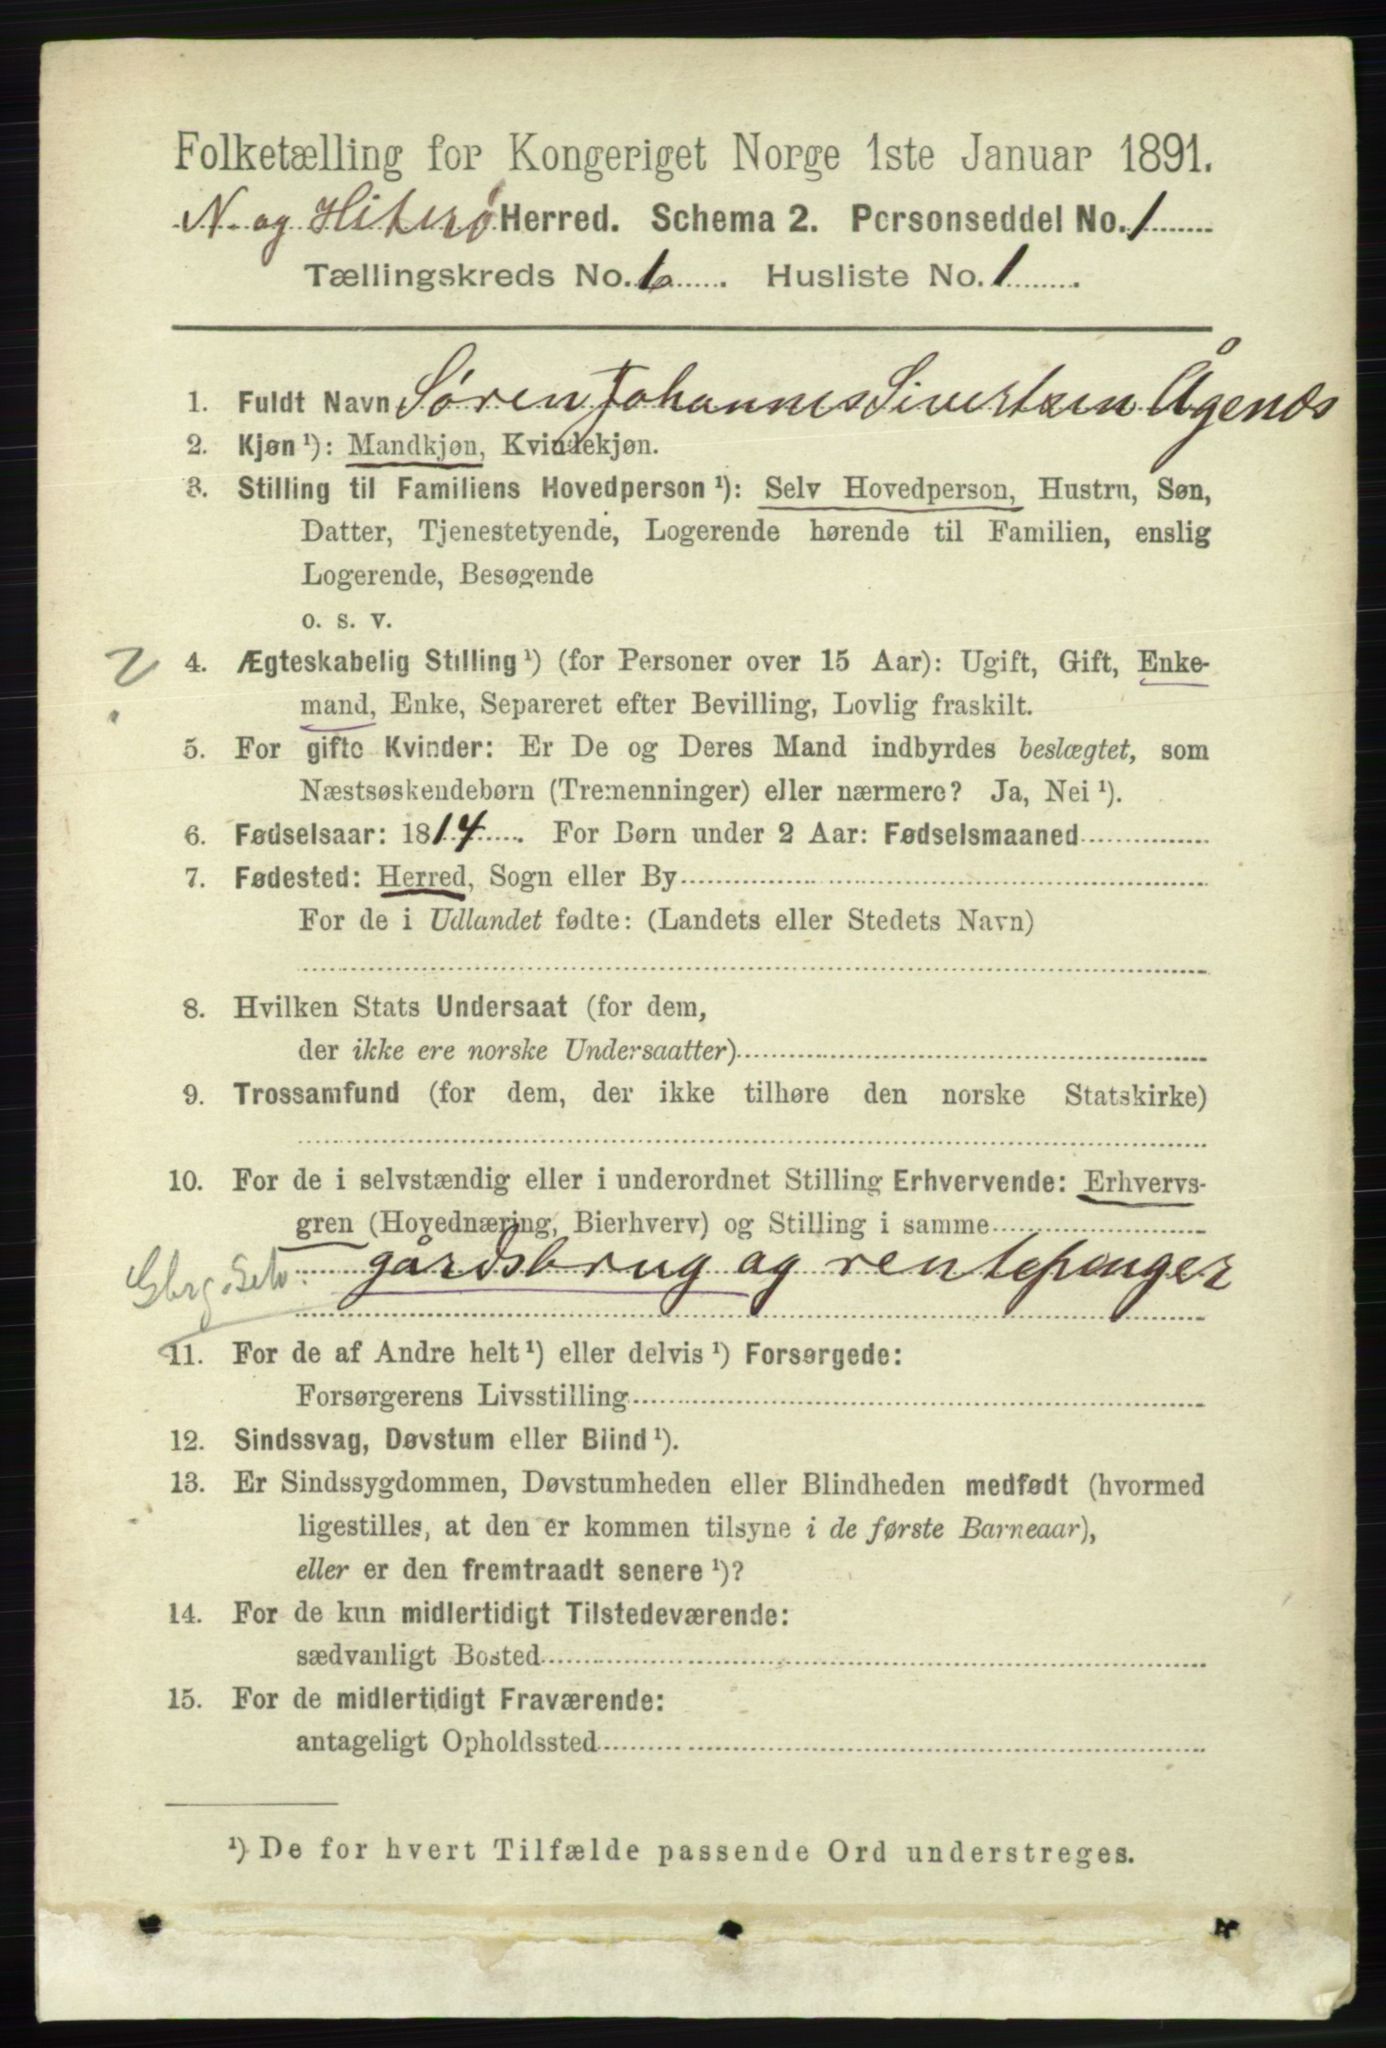 Folketælling for Kongeriget Norge 1ste Januar 1891.
N. og Hiterø Herred. Schema 2. Personseddel No. 1
Tællingskreds No. 6. Husliste No. 1.
1. Fuldt Navn Søren Johannes Sivertsen Ågenæs
2. Kjøn ¹): Mandkjøn, Kvindekjøn.
3. Stilling til Familiens Hovedperson ¹): Selv Hovedperson, Hustru, Søn,
Datter, Tjenestetyende, Logerende hørende til Familien, enslig
Logerende, Besøgende
o. s. v.
2
4. Ægteskabelig Stilling ¹) (for Personer over 15 Aar): Ugift, Gift, Enke-
mand, Enke, Separeret efter Bevilling, Lovlig fraskilt.
5. For gifte Kvinder: Er De og Deres Mand indbyrdes beslægtet, som
Næstsøskendebørn (Tremenninger) eller nærmere? Ja, Nei ¹).
6. Fødselsaar: 1814. For Børn under 2 Aar: Fødselsmaaned
7. Fødested: Herred, Sogn eller By
For de i Udlandet fødte: (Landets eller Stedets Navn)
8. Hvilken Stats Undersaat (for dem,
der ikke ere norske Undersaatter)
9. Trossamfund (for dem, der ikke tilhøre den norske Statskirke)
10. For de i selvstændig eller i underordnet Stilling Erhvervende: Erhvervs-
gren (Hovednæring, Bierhverv) og Stilling i samme
Gbrg. Selv. gårdsbrug og rentepenger
11. For de af Andre helt ¹) eller delvis ¹) Forsørgede:
Forsørgerens Livsstilling
12. Sindssvag, Døvstum eller Blind ¹).
13. Er Sindssygdommen, Døvstumheden eller Blindheden medfødt (hvormed
ligestilles, at den er kommen tilsyne i de første Barneaar),
eller er den fremtraadt senere ¹)?
14. For de kun midlertidigt Tilstedeværende:
sædvanligt Bosted
15. For de midlertidigt Fraværende:
antageligt Opholdssted
¹) De for hvert Tilfælde passende Ord understreges.